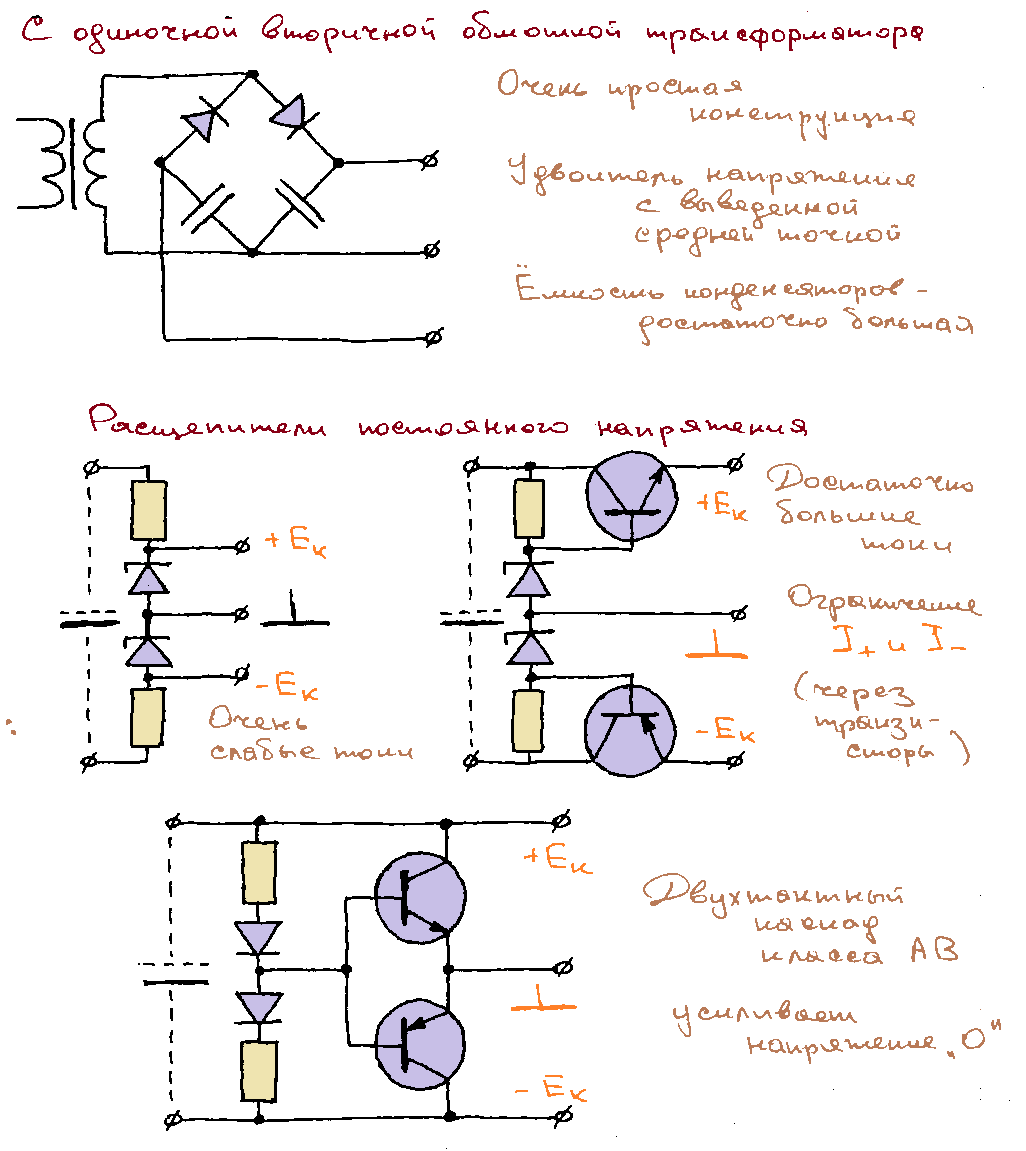 С одиночной вторичной обмоткой трансформатора
Очень простая
конструкция
Удвоитель напряжения
с выведенной
средней точкой
Ёмкость конденсаторов -
достаточно большая
Расщепители постоянного напряжения
+Eк
-Eк
Очень
слабые токи
+Eк
-Eк
Достаточно
большие
токи
Ограничение
I+ и I-
(через
транзи-
сторы)
+Eк
- Eк
Двухтактный
каскад
класса АВ
усиливает
напряжение „0"